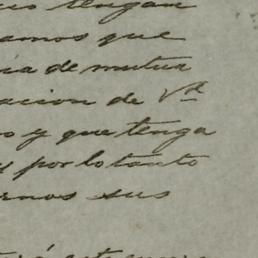 tengan
amos que
ia de mutua
acion de Vd
o y que tenga
y por lo tanto
rnos sus